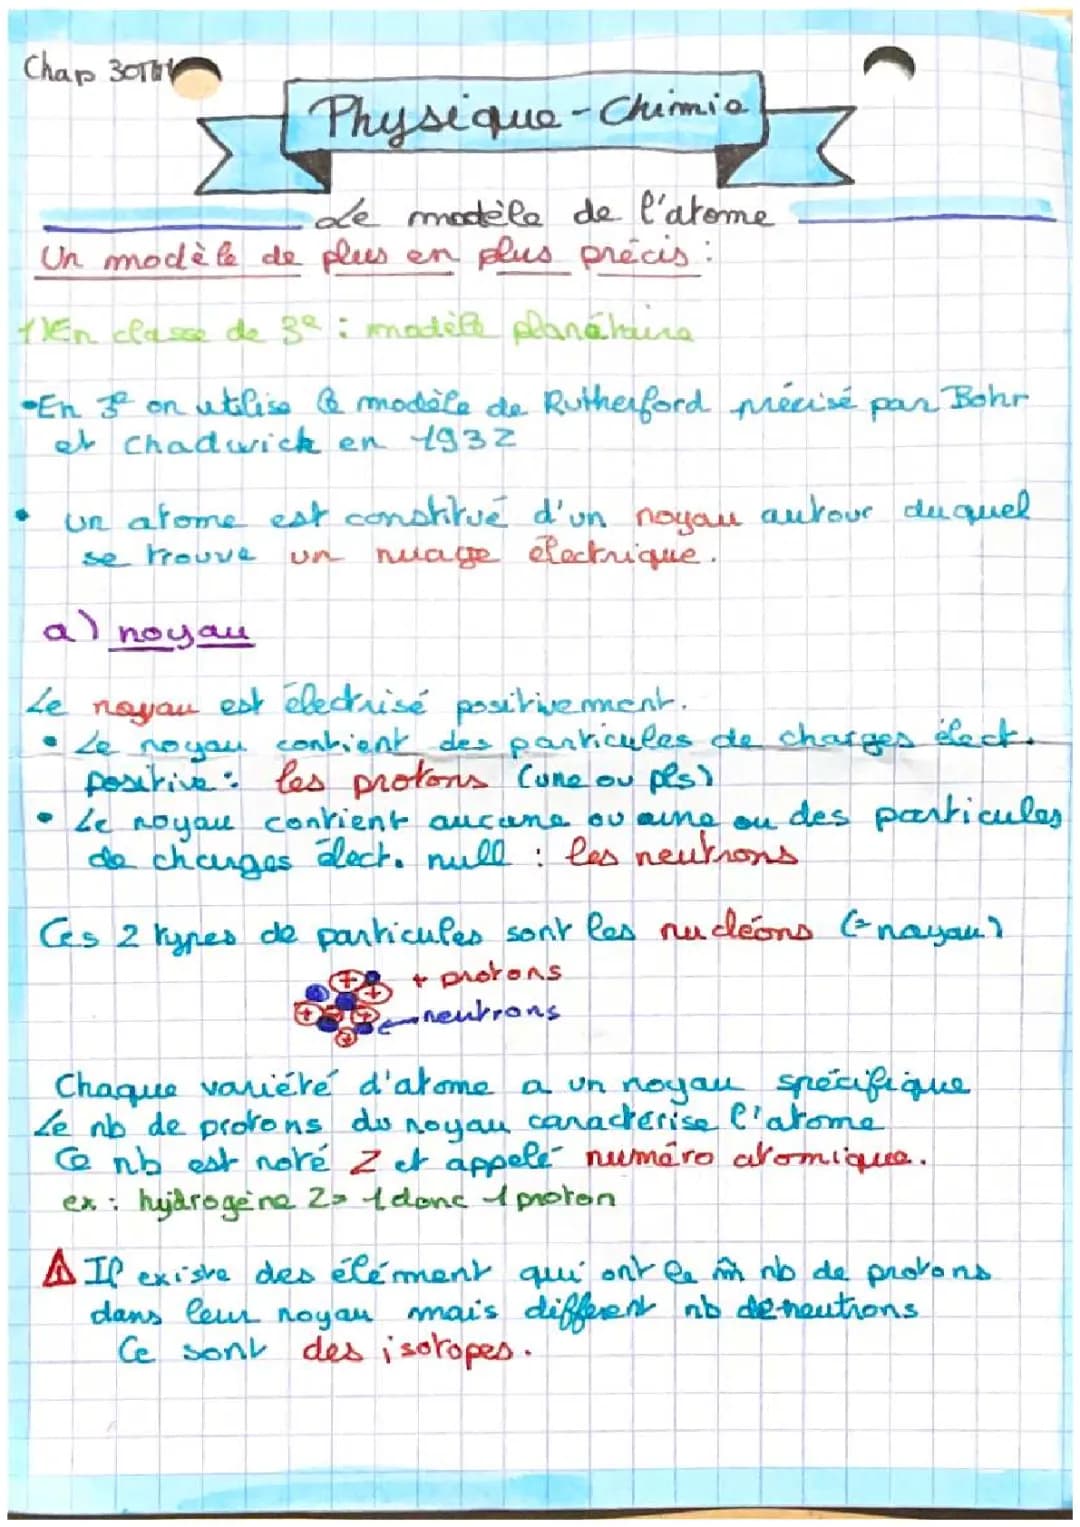 Chap
Physique-Chimie
Le modèle de l'atome
Un modèle de plus en plus précis :
1) En classe de 3e : modèle planétaire
• En 3e on utilise le modèle de Rutherford précisé par Bohr
et Chadwick en 1932
• un atome est constitué d'un noyau autour duquel
se trouve un nuage électrique.
a) noyau
Le noyau est électrisé positivement.
• Le noyau contient des particules de charges élect.
positive : les protons (une ou pls)
• Le noyau contient aucune ou une ou des particules
de charges élect. null : les neutrons
Ces 2 types de particules sont les nucléons (= noyau)
+ protons
neutrons
Chaque variété d'atome a un noyau spécifique
Le nb de protons du noyau caractérise l'atome
Ce nb est noté Z et appelé numéro atomique.
ex : hydrogène Z = 1 donc 1 proton
⚠ Il existe des élément qui ont le m̂ nb de protons
dans leur noyau mais différent nb de neutrons
Ce sont des isotopes.